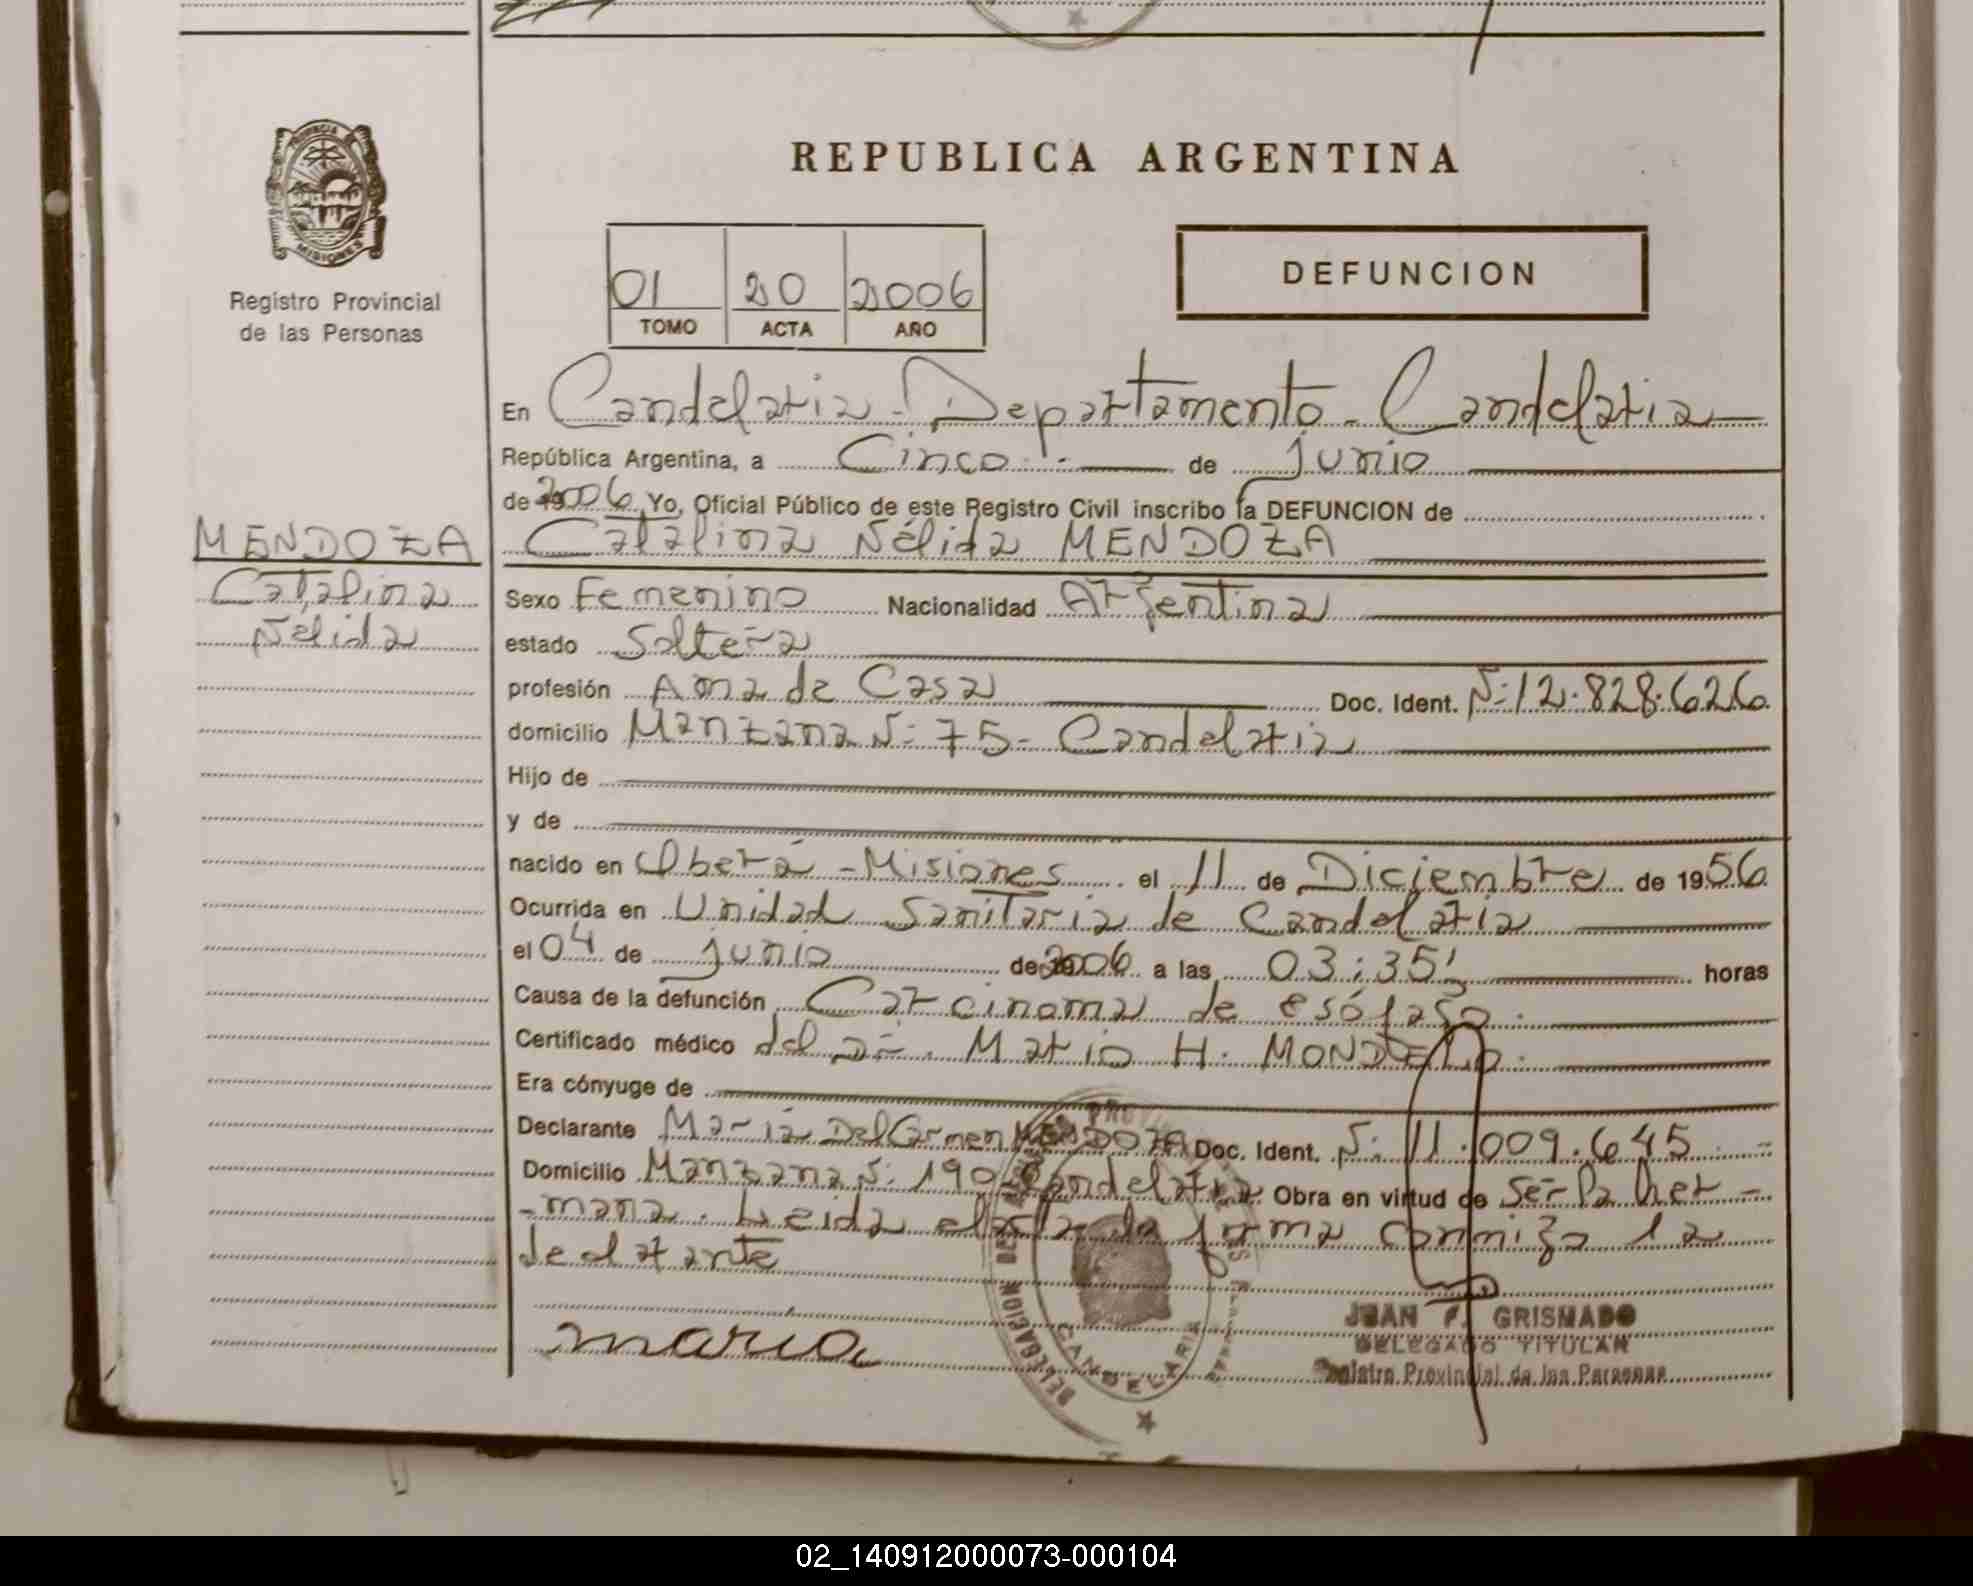 PROVINCIA
MISIONES
Registro Provincial
de las Personas
REPUBLICA ARGENTINA
01 20 2006
TOMO ACTA AÑO
DEFUNCION
En Candelaria - Departamento - Candelaria
República Argentina, a Cinco.- de junio
de 2006 Yo, Oficial Público de este Registro Civil inscribo la DEFUNCION de
MENDOZA Catalina Nélida MENDOZA
Catalina
Nélida
Sexo Femenino Nacionalidad Argentina
estado Soltera
profesión Ama de Casa Doc. Ident. Nº 12.828.626
domicilio Manzana Nº 75 - Candelaria
Hijo de
y de
nacido en Oberá - Misiones el 11 de Diciembre de 1956
Ocurrida en Unidad Sanitaria de Candelaria
el 04 de junio de 2006 a las 03:35' horas
Causa de la defunción Carcinoma de esófago.
Certificado médico del Dr. Mario H.
Era cónyuge de
Declarante María Del Carmen MENDOZA Doc. Ident. Nº 11.009.645
Domicilio Manzana Nº 190 Candelaria Obra en virtud de ser la her-
-mana. Leida el acta la firma conmigo la
declarante
maria
DELEGACION DE
CANDELARIA
JUAN F. GRISMADO
DELEGADO TITULAR
Registro Provincial de las Personas
02_140912000073-000104